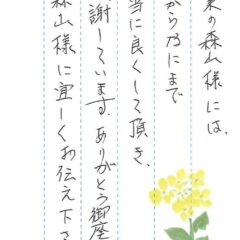 東の森山様には、
から乃にまで
当に良くして頂き、
謝しています。ありがとう御座
森山様に宜しくお伝え下さ